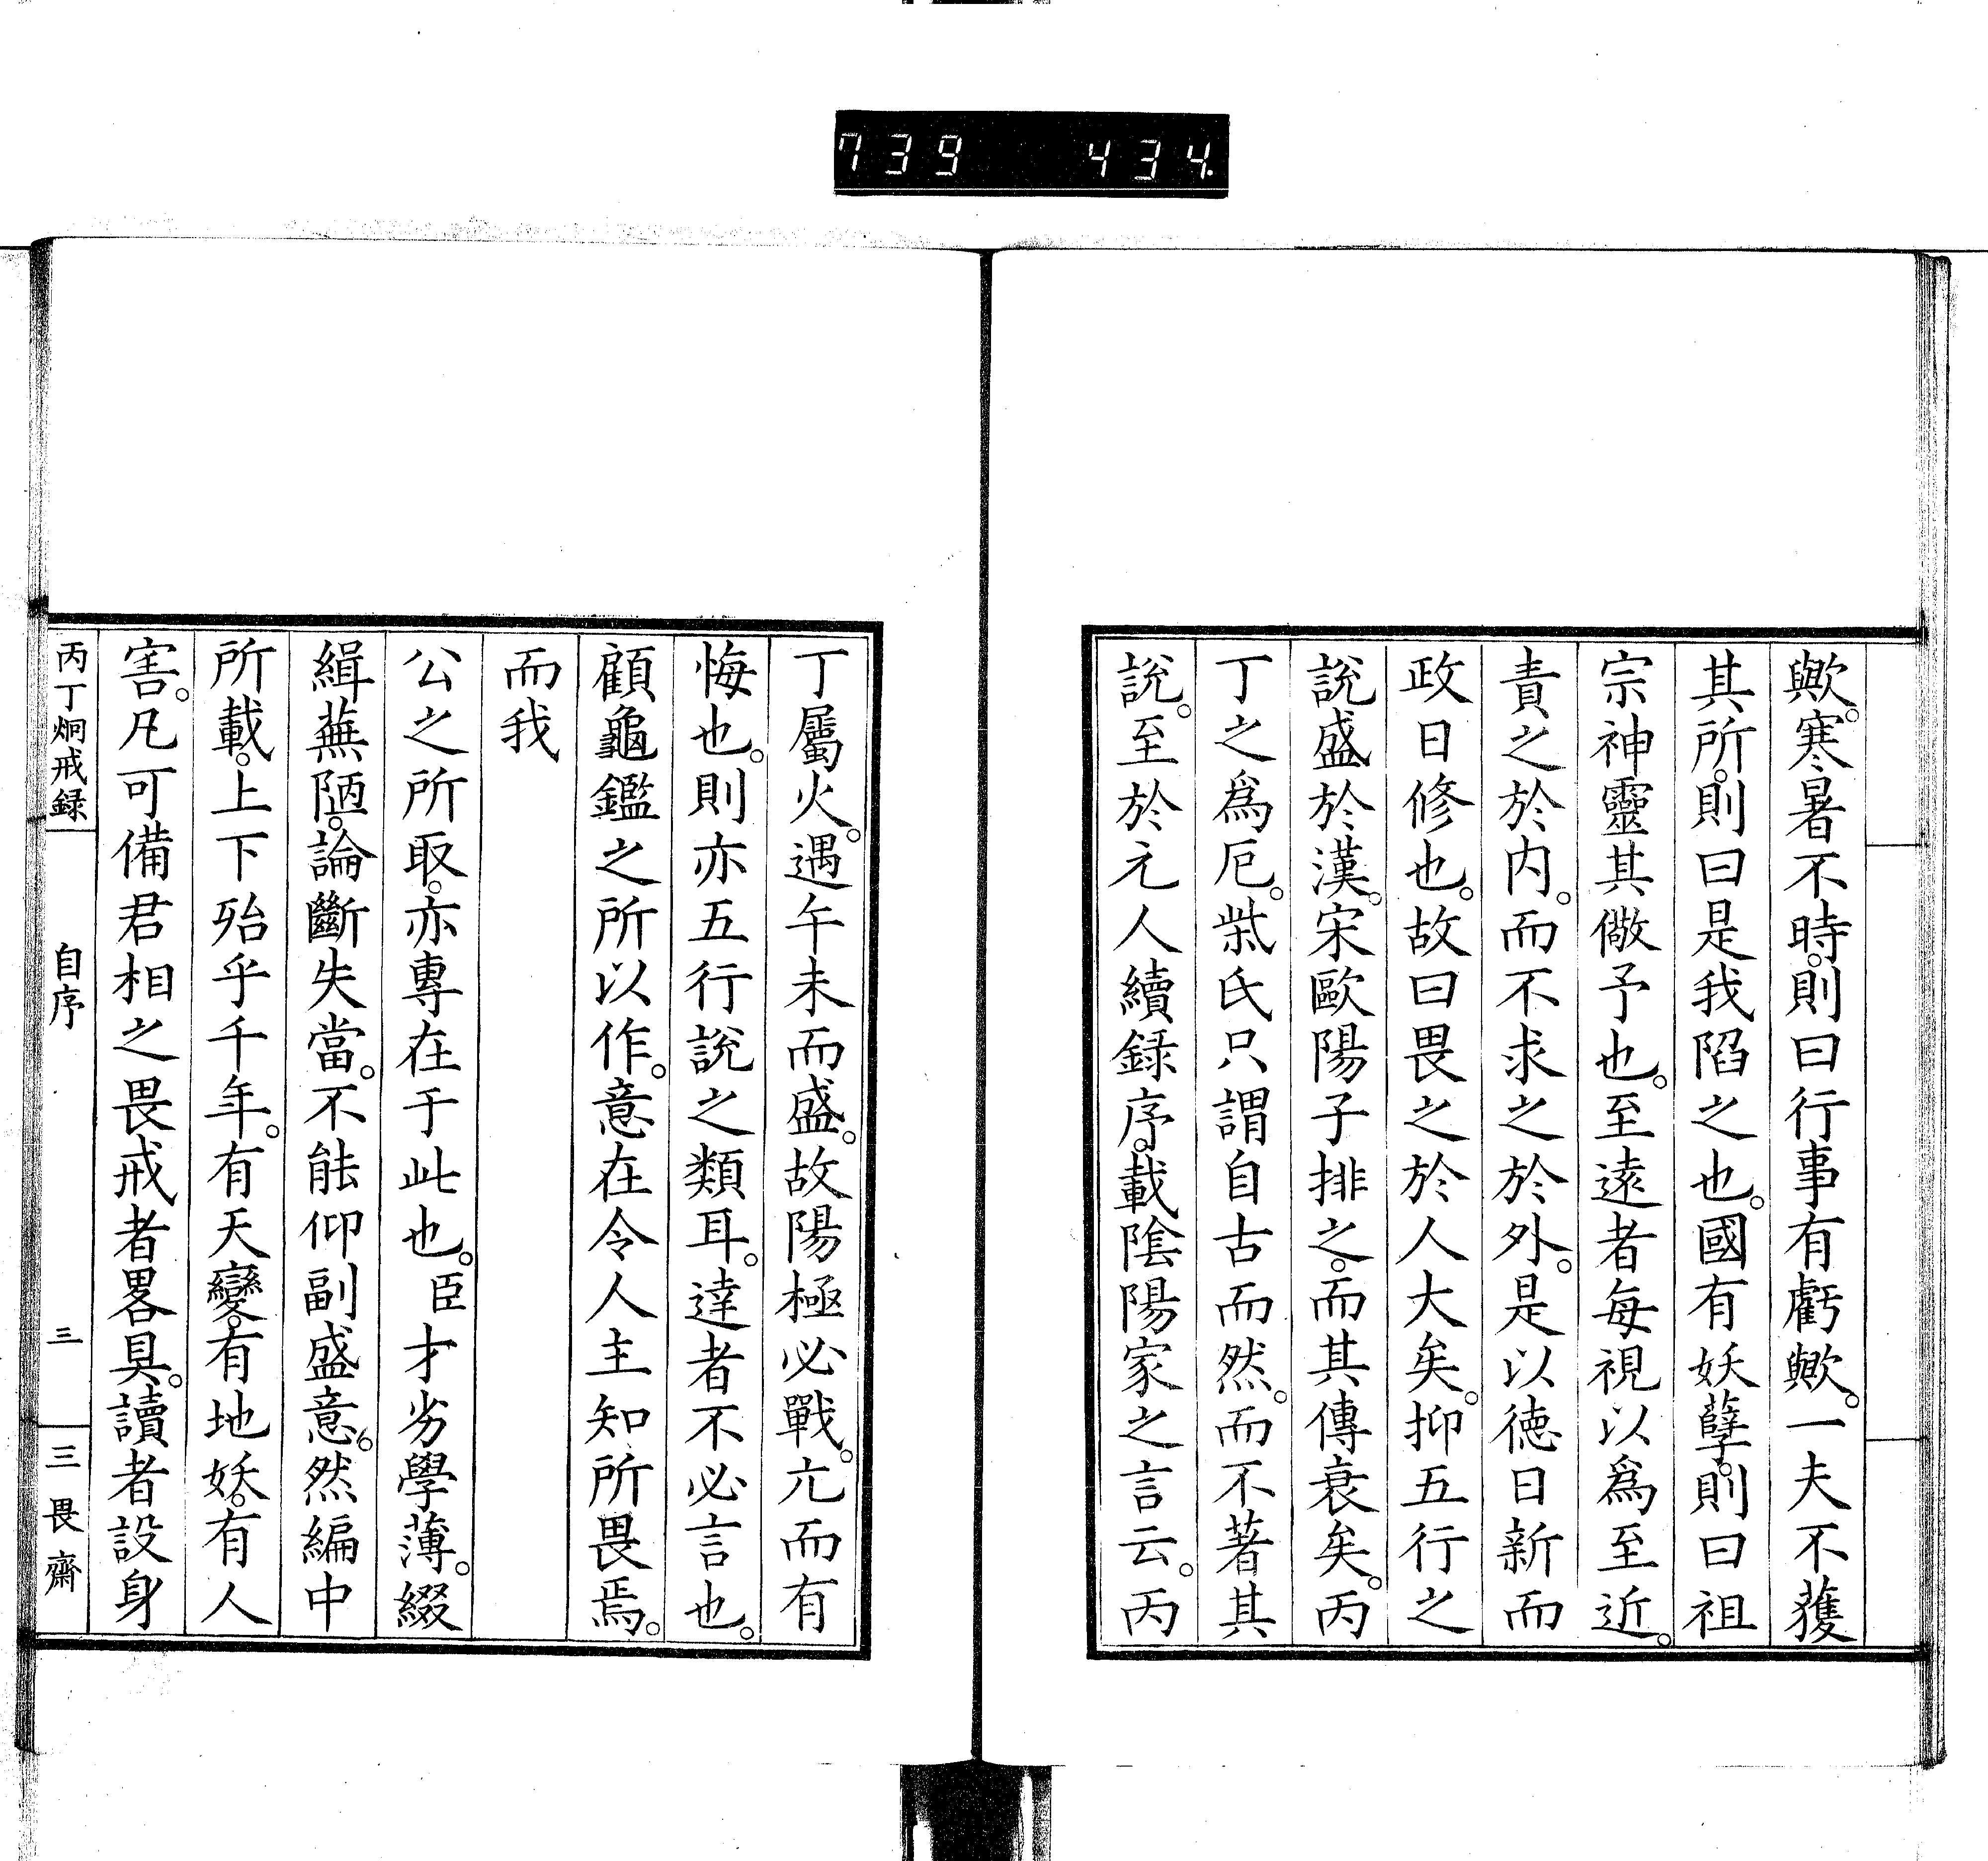 739 434.
歟。寒暑不時。則曰行事有虧歟。一夫不獲
其所。則曰是我陷之也。國有妖孽。則曰祖
宗神靈其儆予也。至遠者每視以爲至近。
責之於内。而不求之於外。是以德日新而
政日修也。故曰畏之於人大矣。抑五行之
說盛於漢。宋歐陽子排之。而其傳衰矣。丙
丁之爲厄。柴氏只謂自古而然。而不著其
說。至於元人續録序。載陰陽家之言云。丙
丁屬火。遇午未而盛。故陽極必戰。亢而有
悔也。則亦五行說之類耳。達者不必言也。
顧龜鑑之所以作。意在令人主知所畏焉。
而我
公之所取。亦專在于此也。臣才劣學薄。綴
緝蕪陋。論斷失當。不能仰副盛意。然編中
所載。上下殆乎千年。有天變。有地妖。有人
害。凡可備君相之畏戒者畧具。讀者設身
丙丁烱戒録 自序 三 三畏齋